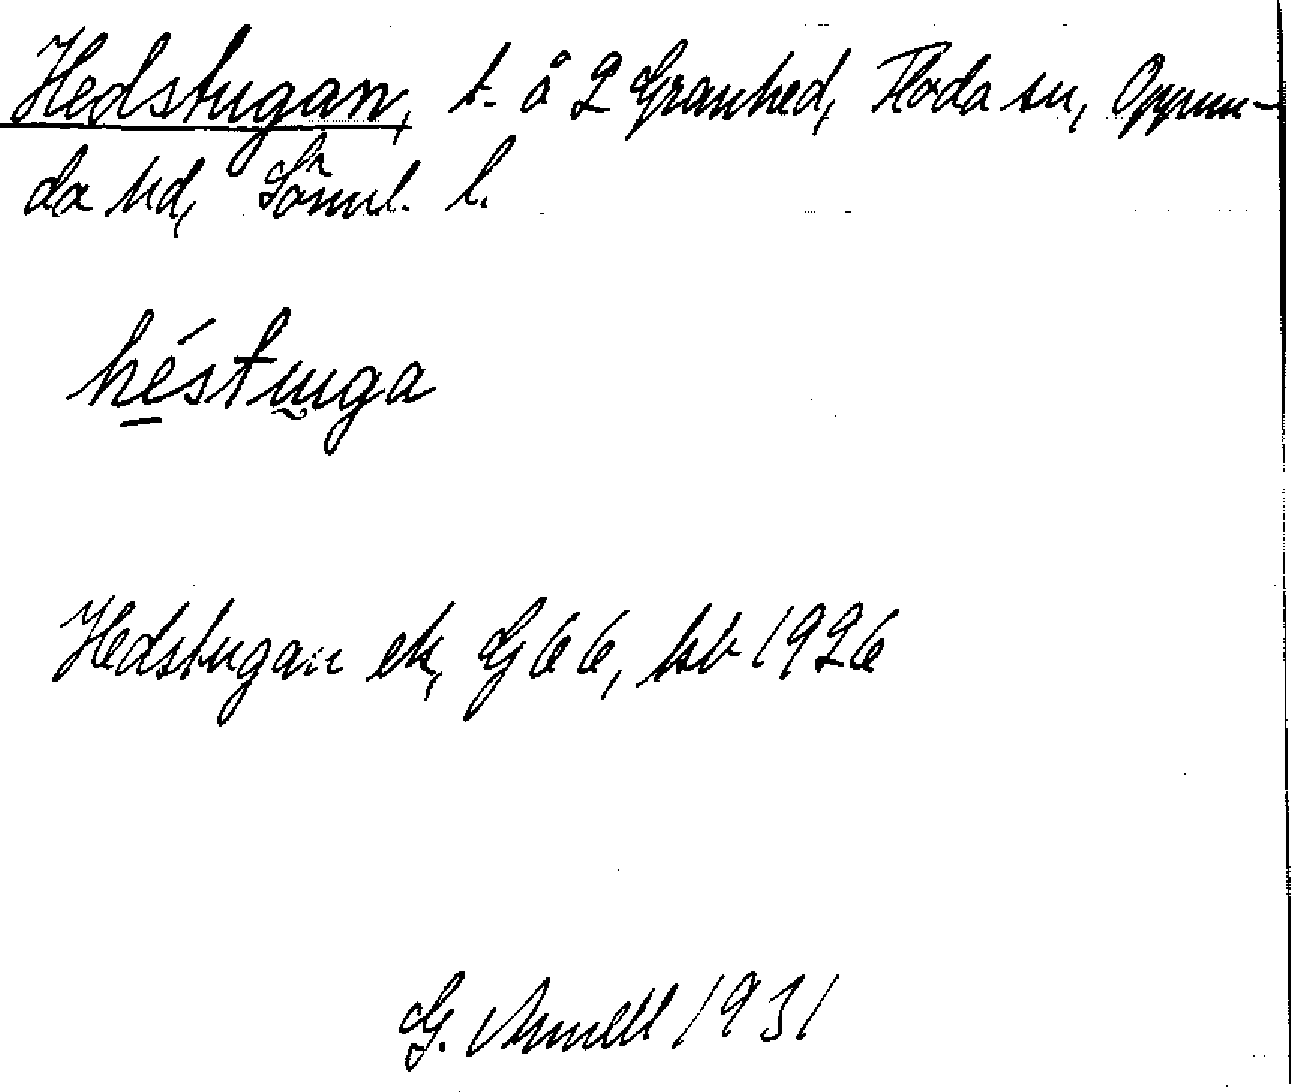 Hedstugan, t. å 2 Granhed, Floda sn, Oppun-
da hd, Söml. l.
héstuga
Hedstugan ek, G66, kb 1926
G. 1931